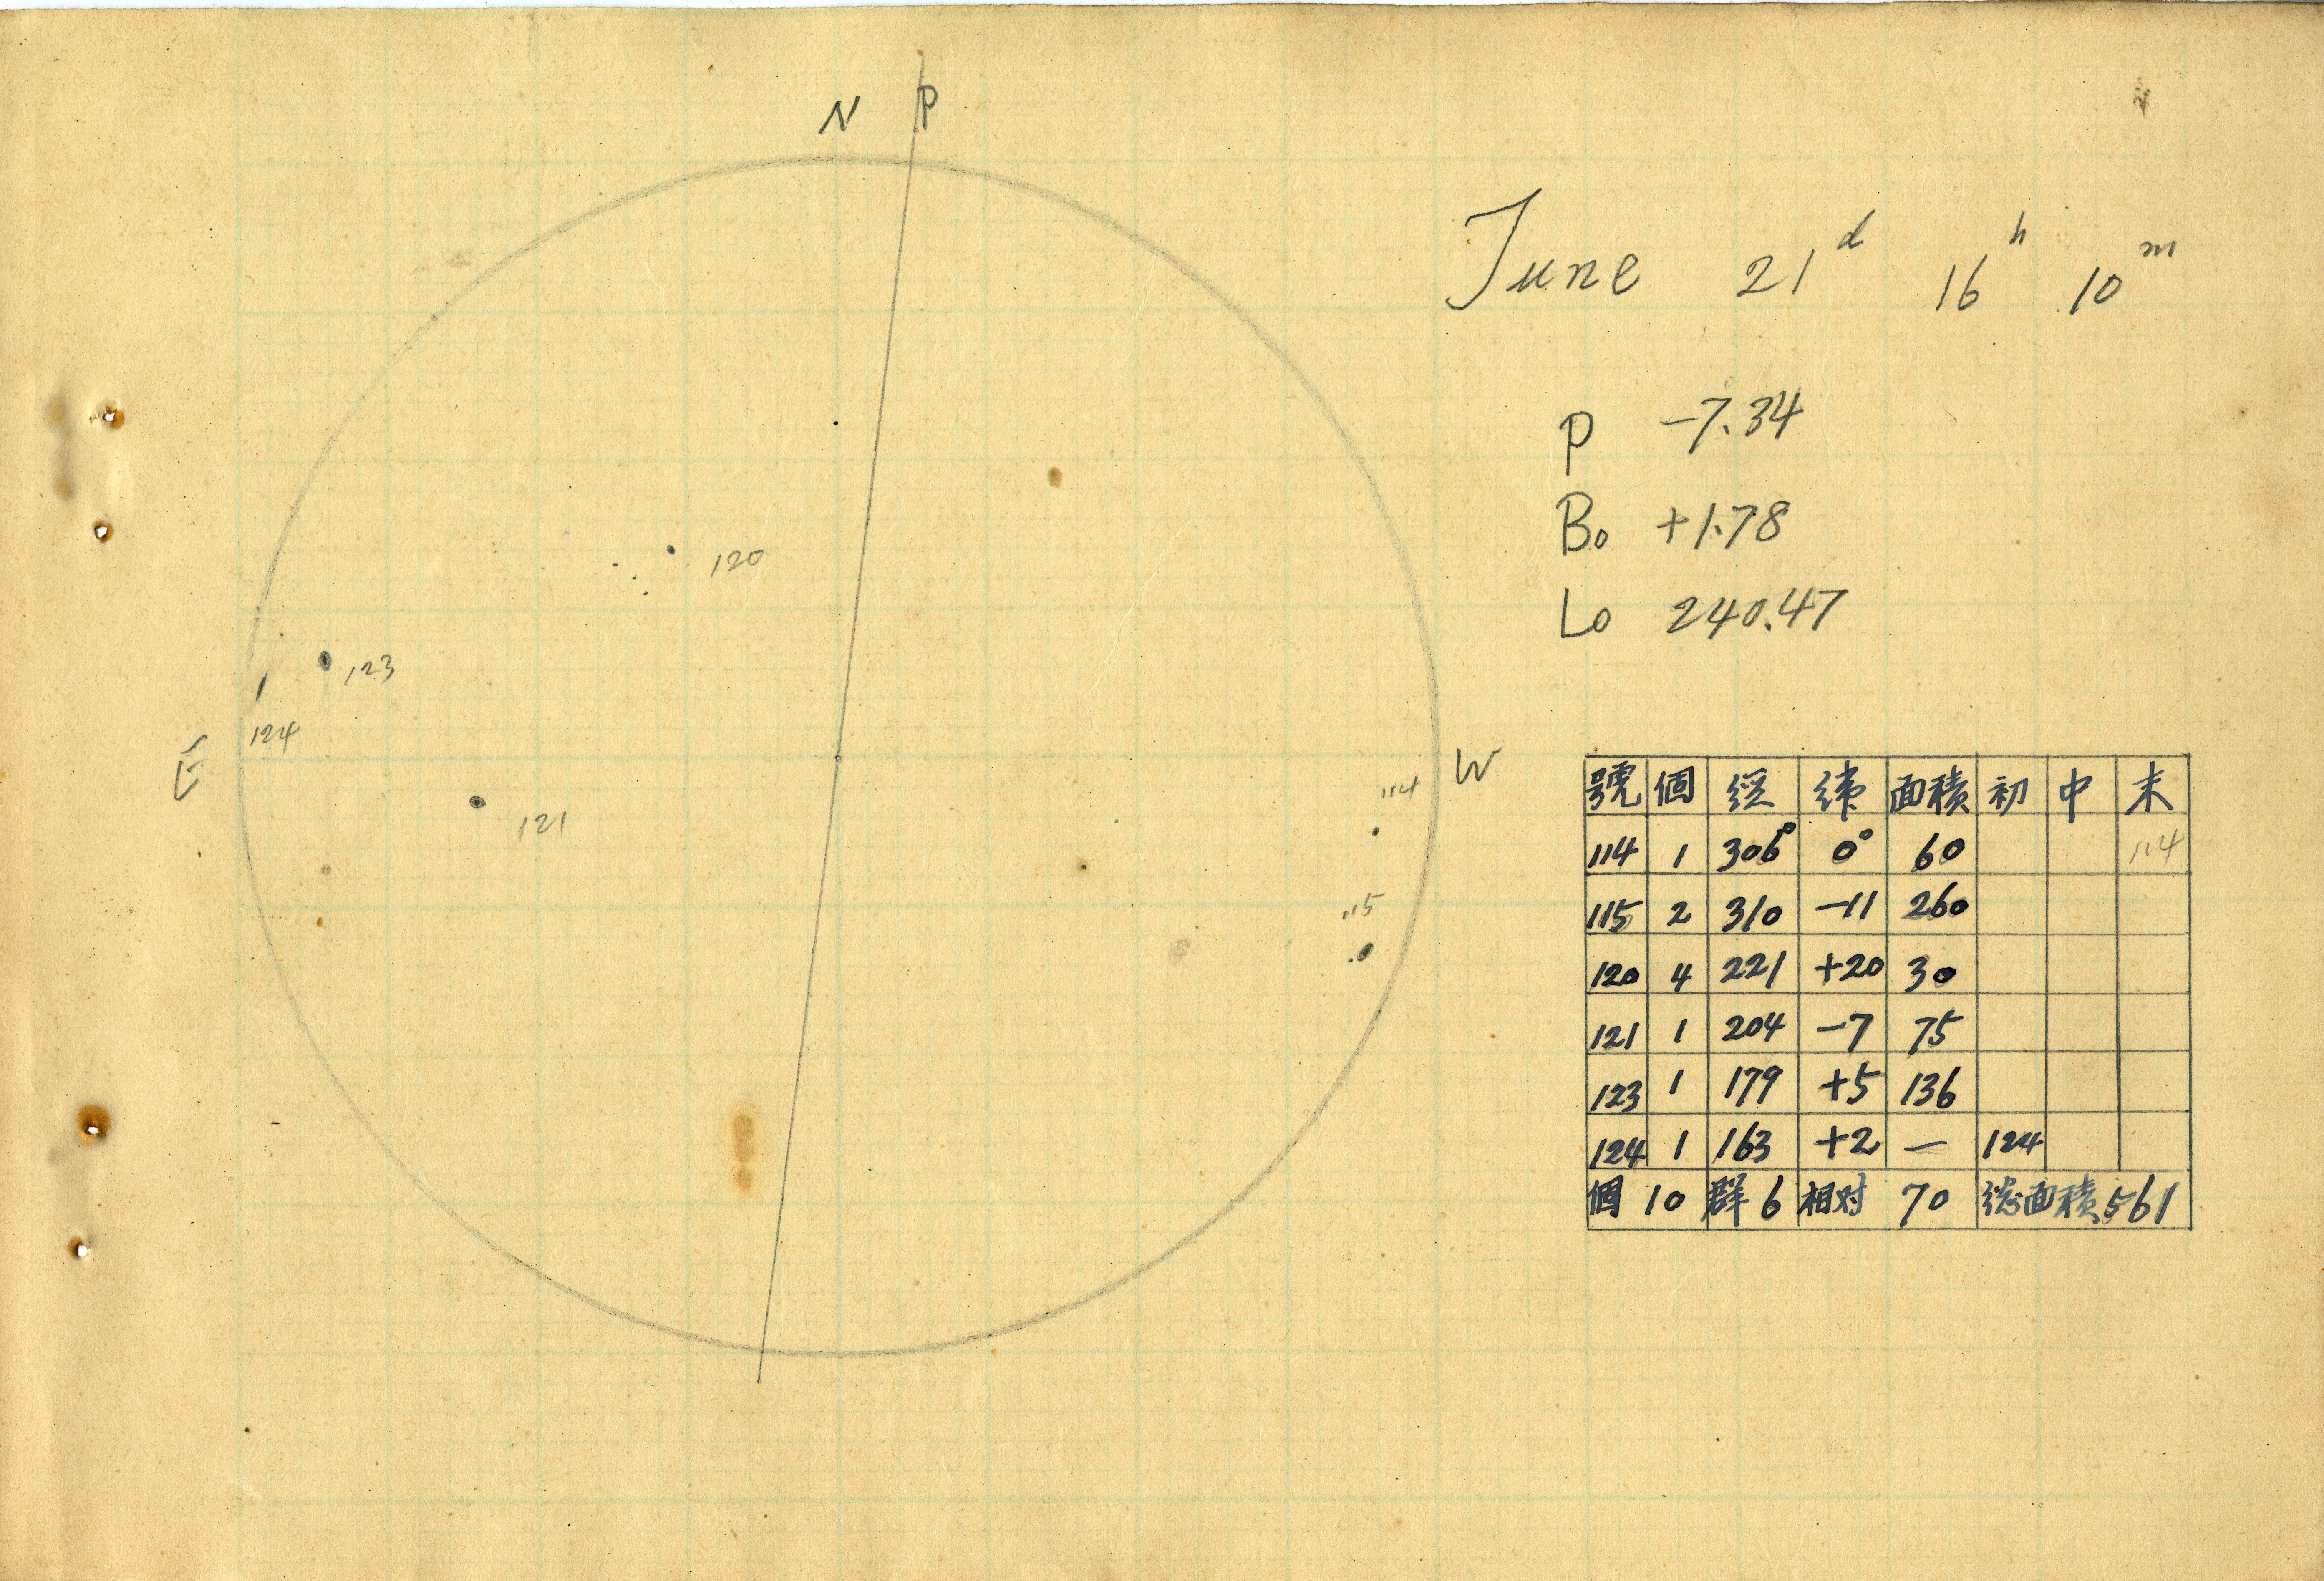 N P
June 21d 16h 10m
P -7.34
Bo +1.78
Lo 240.47
120
123
124
E
121
W
114
115
號 個 経 緯 面積 初 中 末
114 1 306° 0° 60 114
115 2 310 -11 260
120 4 221 +20 30
121 1 204 -7 75
123 1 179 +5 136
124 1 163 +2 — 124
個 10 群 6 相対 70 総面積 561